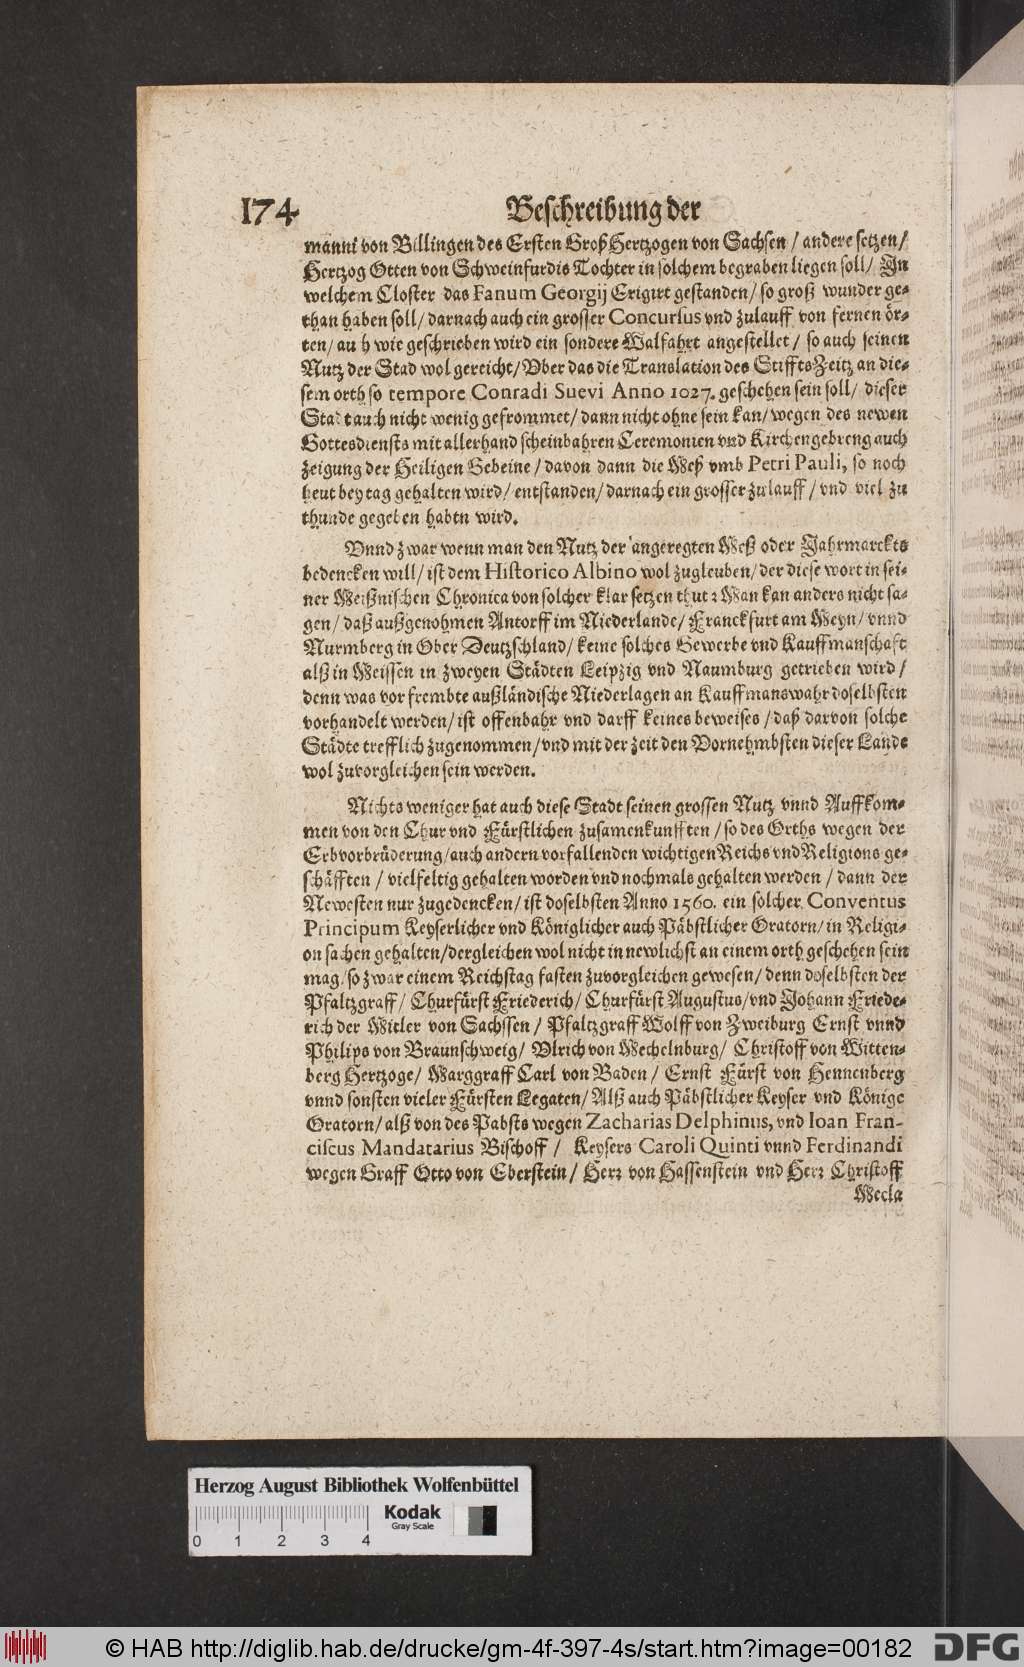 174 Beschreibung der
manni von Billingen des Ersten Groß Hertzogen von Sachsen / andere setzen /
Hertzog Otten von Schweinfurdis Tochter in solchem begraben liegen soll / In
welchem Closter das Fanum Georgij Erigirt gestanden / so groß wunder ge-
than haben soll / darnach auch ein grosser Concursus vnd zulauff von fernen ör-
ten / au h wie geschrieben wird ein sondere Walfahrt angestellet / so auch seinen
Nutz der Stad wol gereicht / Vber das die Translation des Stiffts Zeitz an die-
sem orth so tempore Conradi Suevi Anno 1027. geschehen sein soll / dieser
Stadt auch nicht wenig gefrommet / dann nicht ohne sein kan / wegen des newen
Gottesdiensts mit allerhand scheinbahren Ceremonien vnd Kirchengebreng auch
zeigung der Heiligen Gebeine / davon dann die Meß vmb Petri Pauli, so noch
heut bey tag gehalten wird / entstanden / darnach ein grosser zulauff / vnd viel zu
thunde gegeben habtn wird.
Vnnd zwar wenn man den Nutz der angeregten Meß oder Jahrmarckts
bedencken will / ist dem Historico Albino wol zugleuben / der diese wort in sei-
ner Meißnischen Chronica von solcher klar setzen thut: Man kan anders nicht sa-
gen / daß außgenohmen Antorff im Niederlande / Franckfurt am Meyn / vnnd
Nurmberg in Ober Deutzschland / keine solches Gewerbe vnd Kauffmanschaft
alß in Meissen in zweyen Städten Leipzig vnd Naumburg getrieben wird /
denn was vor frembte außländische Niederlagen an Kauffmanswahr doselbsten
vorhandelt werden / ist offenbahr vnd darff keines beweises / daß darvon solche
Städte trefflich zugenommen / vnd mit der zeit den Vornehmbsten dieser Lande
wol zuvorgleichen sein werden.
Nichts weniger hat auch diese Stadt seinen grossen Nutz vnnd Auffkom-
men von den Chur vnd Fürstlichen zusamenkunfften / so des Orths wegen der
Erbvorbrüderung / auch andern vorfallenden wichtigen Reichs vnd Religions ge-
schäfften / vielfeltig gehalten worden vnd nochmals gehalten werden / dann der
Newesten nur zugedencken / ist doselbsten Anno 1560. ein solcher Conventus
Principum Keyserlicher vnd Königlicher auch Päbstlicher Oratorn / in Religi-
on sachen gehalten / dergleichen wol nicht in newlichst an einem orth geschehen sein
mag / so zwar einem Reichstag fasten zuvorgleichen gewesen / denn doselbsten der
Pfaltzgraff / Churfürst Friederich / Churfürst Augustus / vnd Johann Friede-
rich der Mitler von Sachssen / Pfaltzgraff Wolff von Zweiburg Ernst vnnd
Philips von Braunschweig / Vlrich von Mechelnburg / Christoff von Witten-
berg Hertzoge / Marggraff Carl von Baden / Ernst Fürst von Hennenberg
vnnd sonsten vieler Fürsten Legaten / Alß auch Päbstlicher Keyser vnd Könige
Oratorn / alß von des Pabsts wegen Zacharias Delphinus, vnd Ioan Fran-
ciscus Mandatarius Bischoff / Keysers Caroli Quinti vnnd Ferdinandi
wegen Graff Otto von Eberstein / Herr von Hassenstein vnd Herr Christoff
Mecla
Herzog August Bibliothek Wolfenbüttel
Kodak
Gray Scale
0 1 2 3 4
© HAB http://diglib.hab.de/drucke/gm-4f-397-4s/start.htm?image=00182
DFG